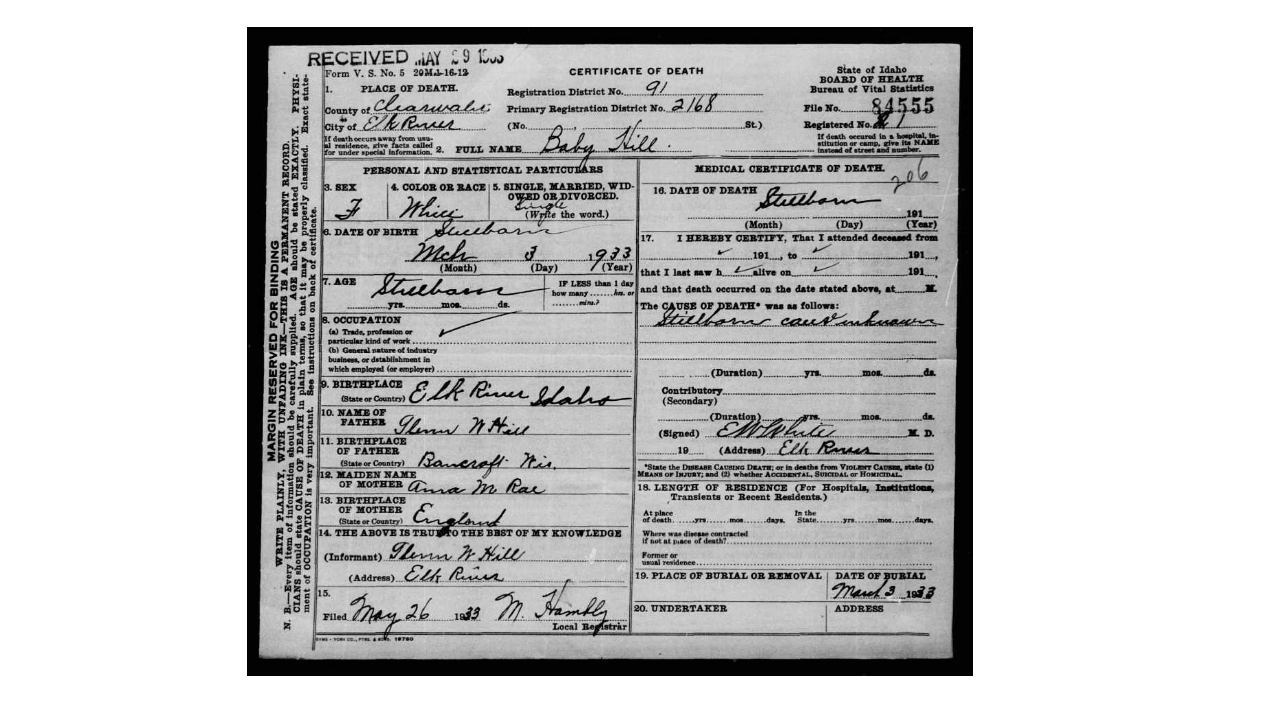 RECEIVED MAY 29 1933
Form V. S. No. 5 20M.1-16-12
CERTIFICATE OF DEATH
State of Idaho
BOARD OF HEALTH
Bureau of Vital Statistics
1. PLACE OF DEATH.
Registration District No. 91
County of Clearwater
Primary Registration District No. 2168
File No. 84555
City of Elk River
(No. St.)
Registered No. 1
If death occurs away from usu-
al residence, give facts called
for under special information.
2. FULL NAME Baby Hill.
If death occurred in a hospital, in-
stitution or camp, give its NAME
instead of street and number.
PERSONAL AND STATISTICAL PARTICULARS
3. SEX
F
4. COLOR OR RACE
White
5. SINGLE, MARRIED, WID-
OWED OR DIVORCED.
Single
(Write the word.)
6. DATE OF BIRTH Stillborn
Mch 3 1933
(Month) (Day) (Year)
7. AGE
Stillborn
yrs. mos. ds.
IF LESS than 1 day
how many hrs. or
mins.?
8. OCCUPATION
(a) Trade, profession or
particular kind of work
(b) General nature of industry
business, or establishment in
which employed (or employer)
9. BIRTHPLACE
(State or Country) Elk River Idaho
10. NAME OF
FATHER Glenn W Hill
11. BIRTHPLACE
OF FATHER
(State or Country) Bancroft Wis.
12. MAIDEN NAME
OF MOTHER Anna M Rae
13. BIRTHPLACE
OF MOTHER
(State or Country) England
14. THE ABOVE IS TRUE TO THE BEST OF MY KNOWLEDGE
(Informant) Glenn W Hill
(Address) Elk River
15.
Filed May 26 1933 M. Hambly
Local Registrar
SYMS - YORK CO., PTRS. & BDRS. 19760
MEDICAL CERTIFICATE OF DEATH.
206
16. DATE OF DEATH
Stillborn 191
(Month) (Day) (Year)
17. I HEREBY CERTIFY, That I attended deceased from
191, to 191,
that I last saw h alive on 191,
and that death occurred on the date stated above, at M.
The CAUSE OF DEATH* was as follows:
Stillborn cause unknown
(Duration) yrs. mos. ds.
Contributory
(Secondary)
(Duration) yrs. mos. ds.
(Signed) E W White M. D.
19 (Address) Elk River
*State the DISEASE CAUSING DEATH; or in deaths from VIOLENT CAUSES, state (1)
MEANS OF INJURY; and (2) whether ACCIDENTAL, SUICIDAL or HOMICIDAL.
18. LENGTH OF RESIDENCE (For Hospitals, Institutions,
Transients or Recent Residents.)
At place
of death yrs. mos. days.
In the
State yrs. mos. days.
Where was disease contracted
if not at place of death?
Former or
usual residence
19. PLACE OF BURIAL OR REMOVAL
DATE OF BURIAL
March 3 1933
20. UNDERTAKER
ADDRESS
MARGIN RESERVED FOR BINDING
WRITE PLAINLY, WITH UNFADING INK—THIS IS A PERMANENT RECORD.
N. B.—Every item of information should be carefully supplied. AGE should be stated EXACTLY. PHYSI-
CIANS should state CAUSE OF DEATH in plain terms, so that it may be properly classified. Exact state-
ment of OCCUPATION is very important. See instructions on back of certificate.